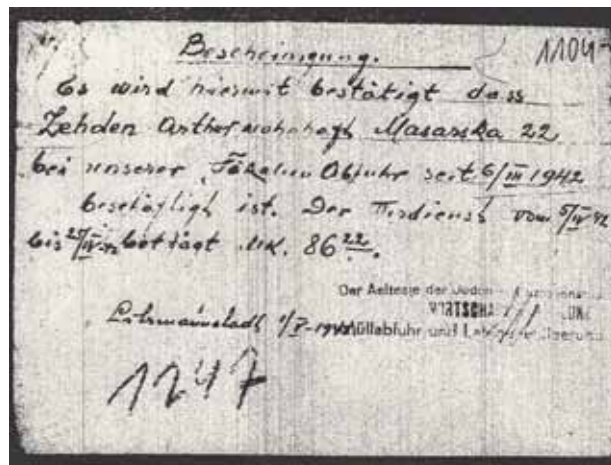 1104
Bescheinigung.
Es wird hiermit bestätigt dass
Zehden Arthur wohnhaft Masarska 22
bei unserer Fäkalien Abfuhr seit 6/III 1942
beschäftigt ist. Der Verdienst vom 5/IV 42
bis 25/IV 42 beträgt Mk. 86 22.
Der Aelteste der Juden
WIRTSCHA
Litzmannstadt 1/V-1942
Müllabfuhr und
1247